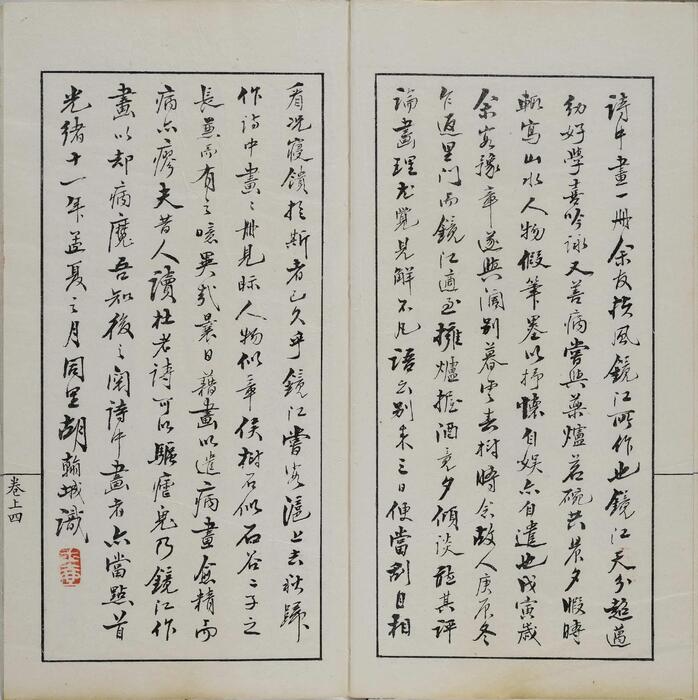 詩中畫一冊余友扶風鏡江所作也鏡江天分超邁
幼好學喜吟詠又善病嘗與藥爐茗碗共晨夕暇時
輒寫山水人物假筆墨以抒懷自娛亦自遣也戊寅歲
余客豫章遂與闊別暮雲春樹時念故人庚辰冬
乍返里門而鏡江適至擁爐握酒竟夕傾談聆其評
論畫理尤覺見解不凡語云別來三日便當刮目相
看況寢饋於斯者已久乎鏡江嘗客滬上去秋歸
作詩中畫畫冊見眎人物似章侯樹石似石谷二子之
長兼而有之噫異哉曩日藉畫以遣病畫愈精而
病亦瘳夫昔人讀杜老詩可以驅瘧鬼乃鏡江作
畫以却病魔吾知後之閱詩中畫者亦當點首
光緒十一年孟夏之月同里胡翰城識
卷上四